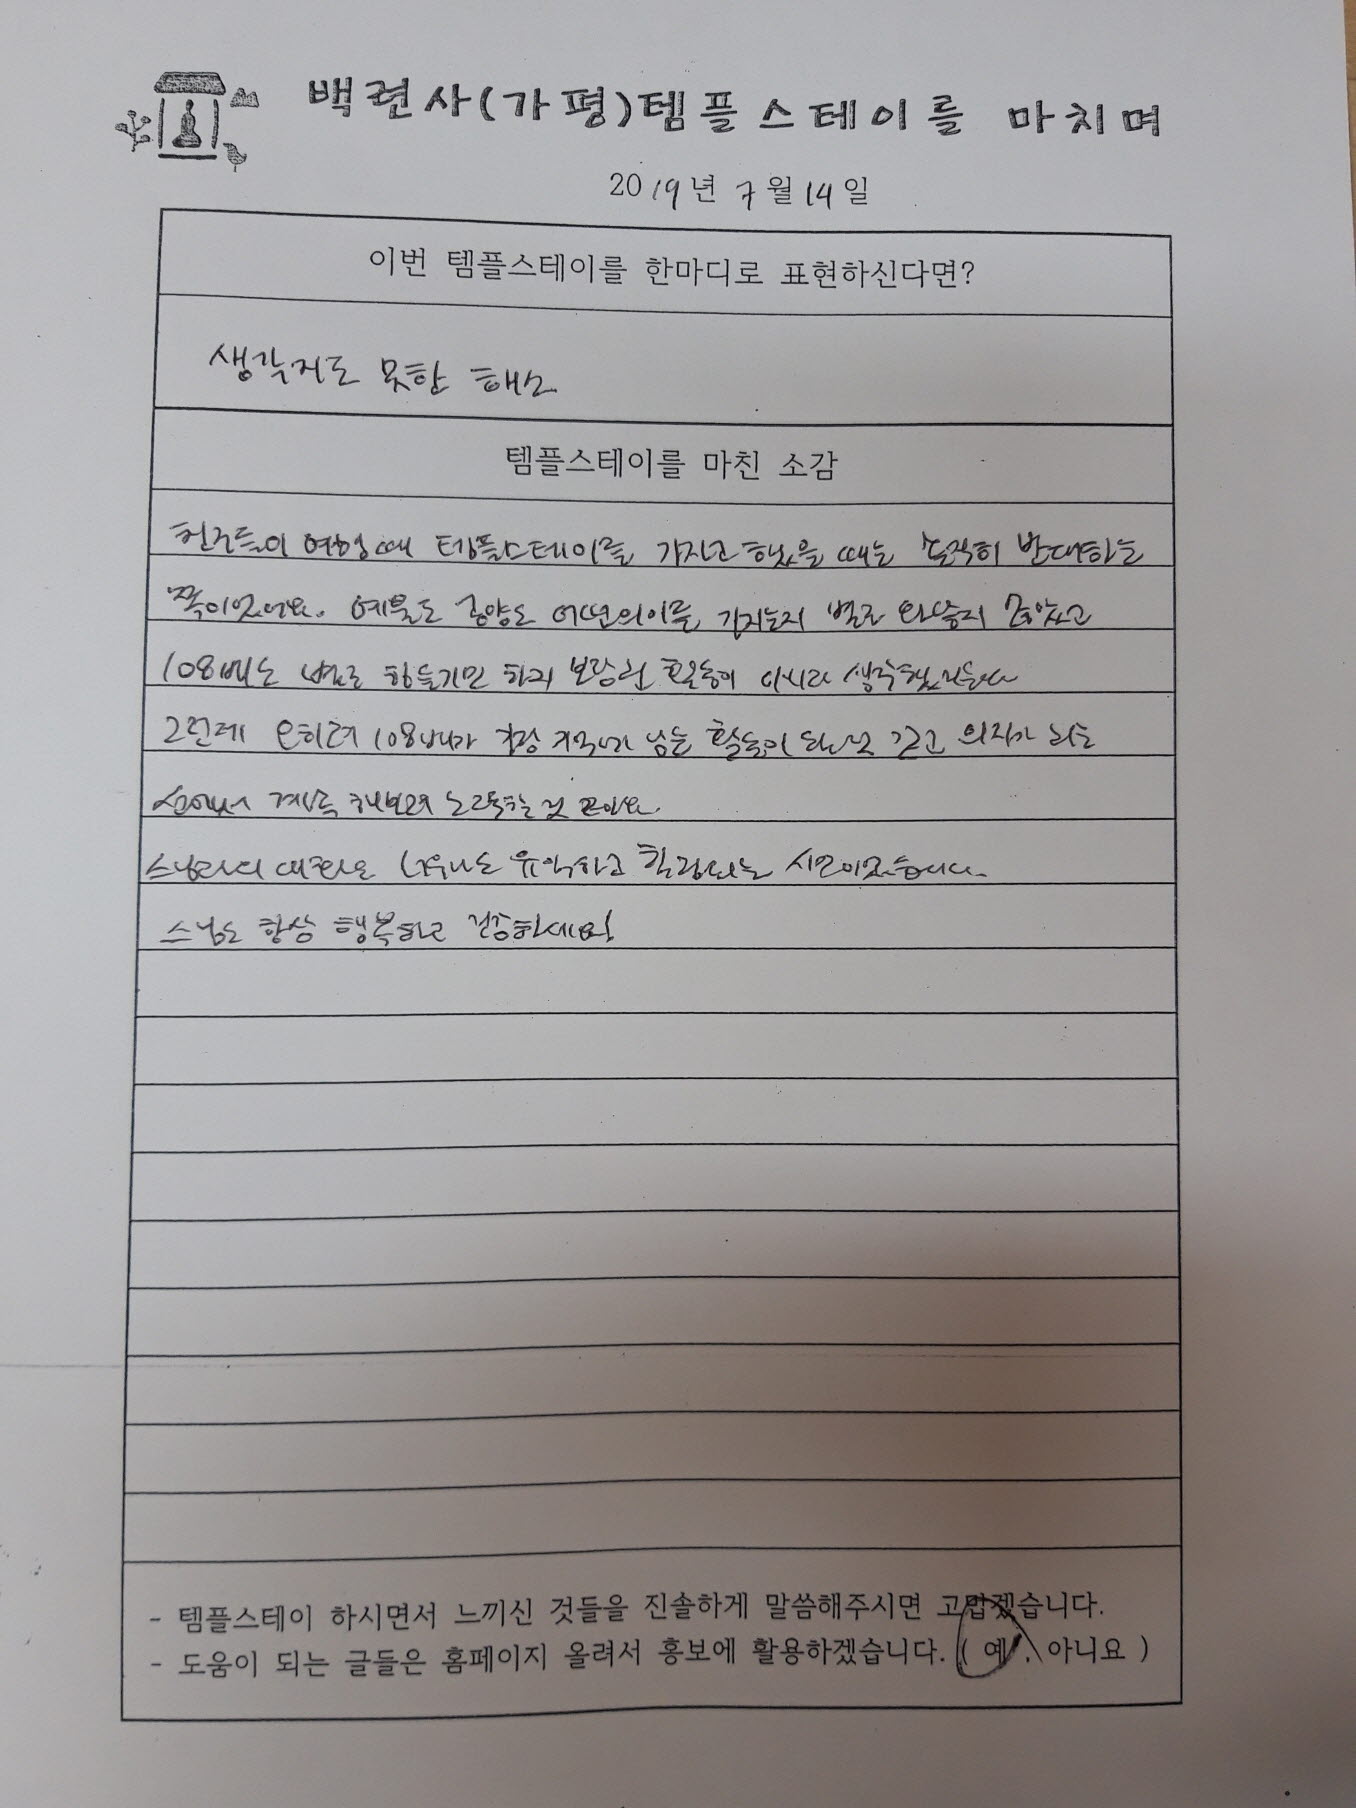 백련사(가평)템플스테이를 마치며
2019년 7월 14일
이번 템플스테이를 한마디로 표현하신다면?
생각지도 못한 해소
템플스테이를 마친 소감
친구들이 여행 때 템플스테이를 가자고 했을 때는 솔직히 반대하는
쪽이었어요. 예불도 공양도 어떤의미를 가지는지 별로 와닿지 않았고
108배는 별로 힘들기만 하지 보람된 활동이 아니라 생각했거든요
그런데 오히려 108배가 가장 기억에 남는 활동이 되었고
계속 해보려 노력할 것 같아요.
스님과의 대화는 너무나도 유익하고 힐링되는 시간이었습니다.
스님도 항상 행복하고 건강하세요!
- 템플스테이 하시면서 느끼신 것들을 진솔하게 말씀해주시면 고맙겠습니다.
- 도움이 되는 글들은 홈페이지 올려서 홍보에 활용하겠습니다. ( 예 , 아니요 )